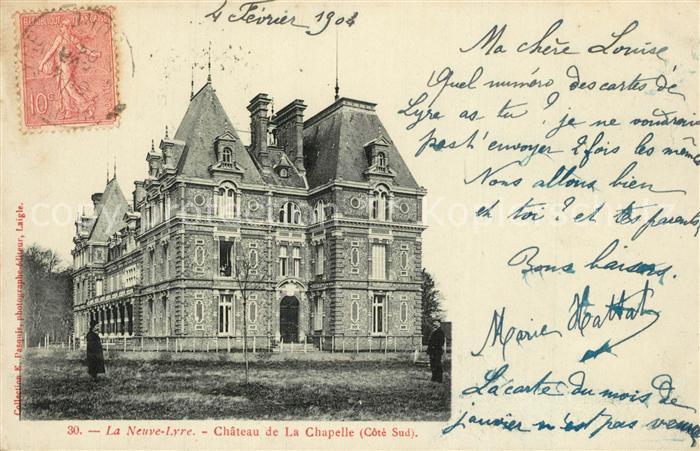 4 Février 1904
Ma chère Louise
Quel numéro des cartes de
Lyre as tu ? je ne voudrais
pas t'envoyer 2 fois les mêmes
Nous allons bien
et toi ? et tes parents,
Bons baisers.
Marie Hattat
La carte du mois de
janvier n'est pas venue
10c
Collection E. Pasquis, photographe-éditeur, Laigle.
30. — La Neuve-Lyre. - Château de La Chapelle (Côté Sud).